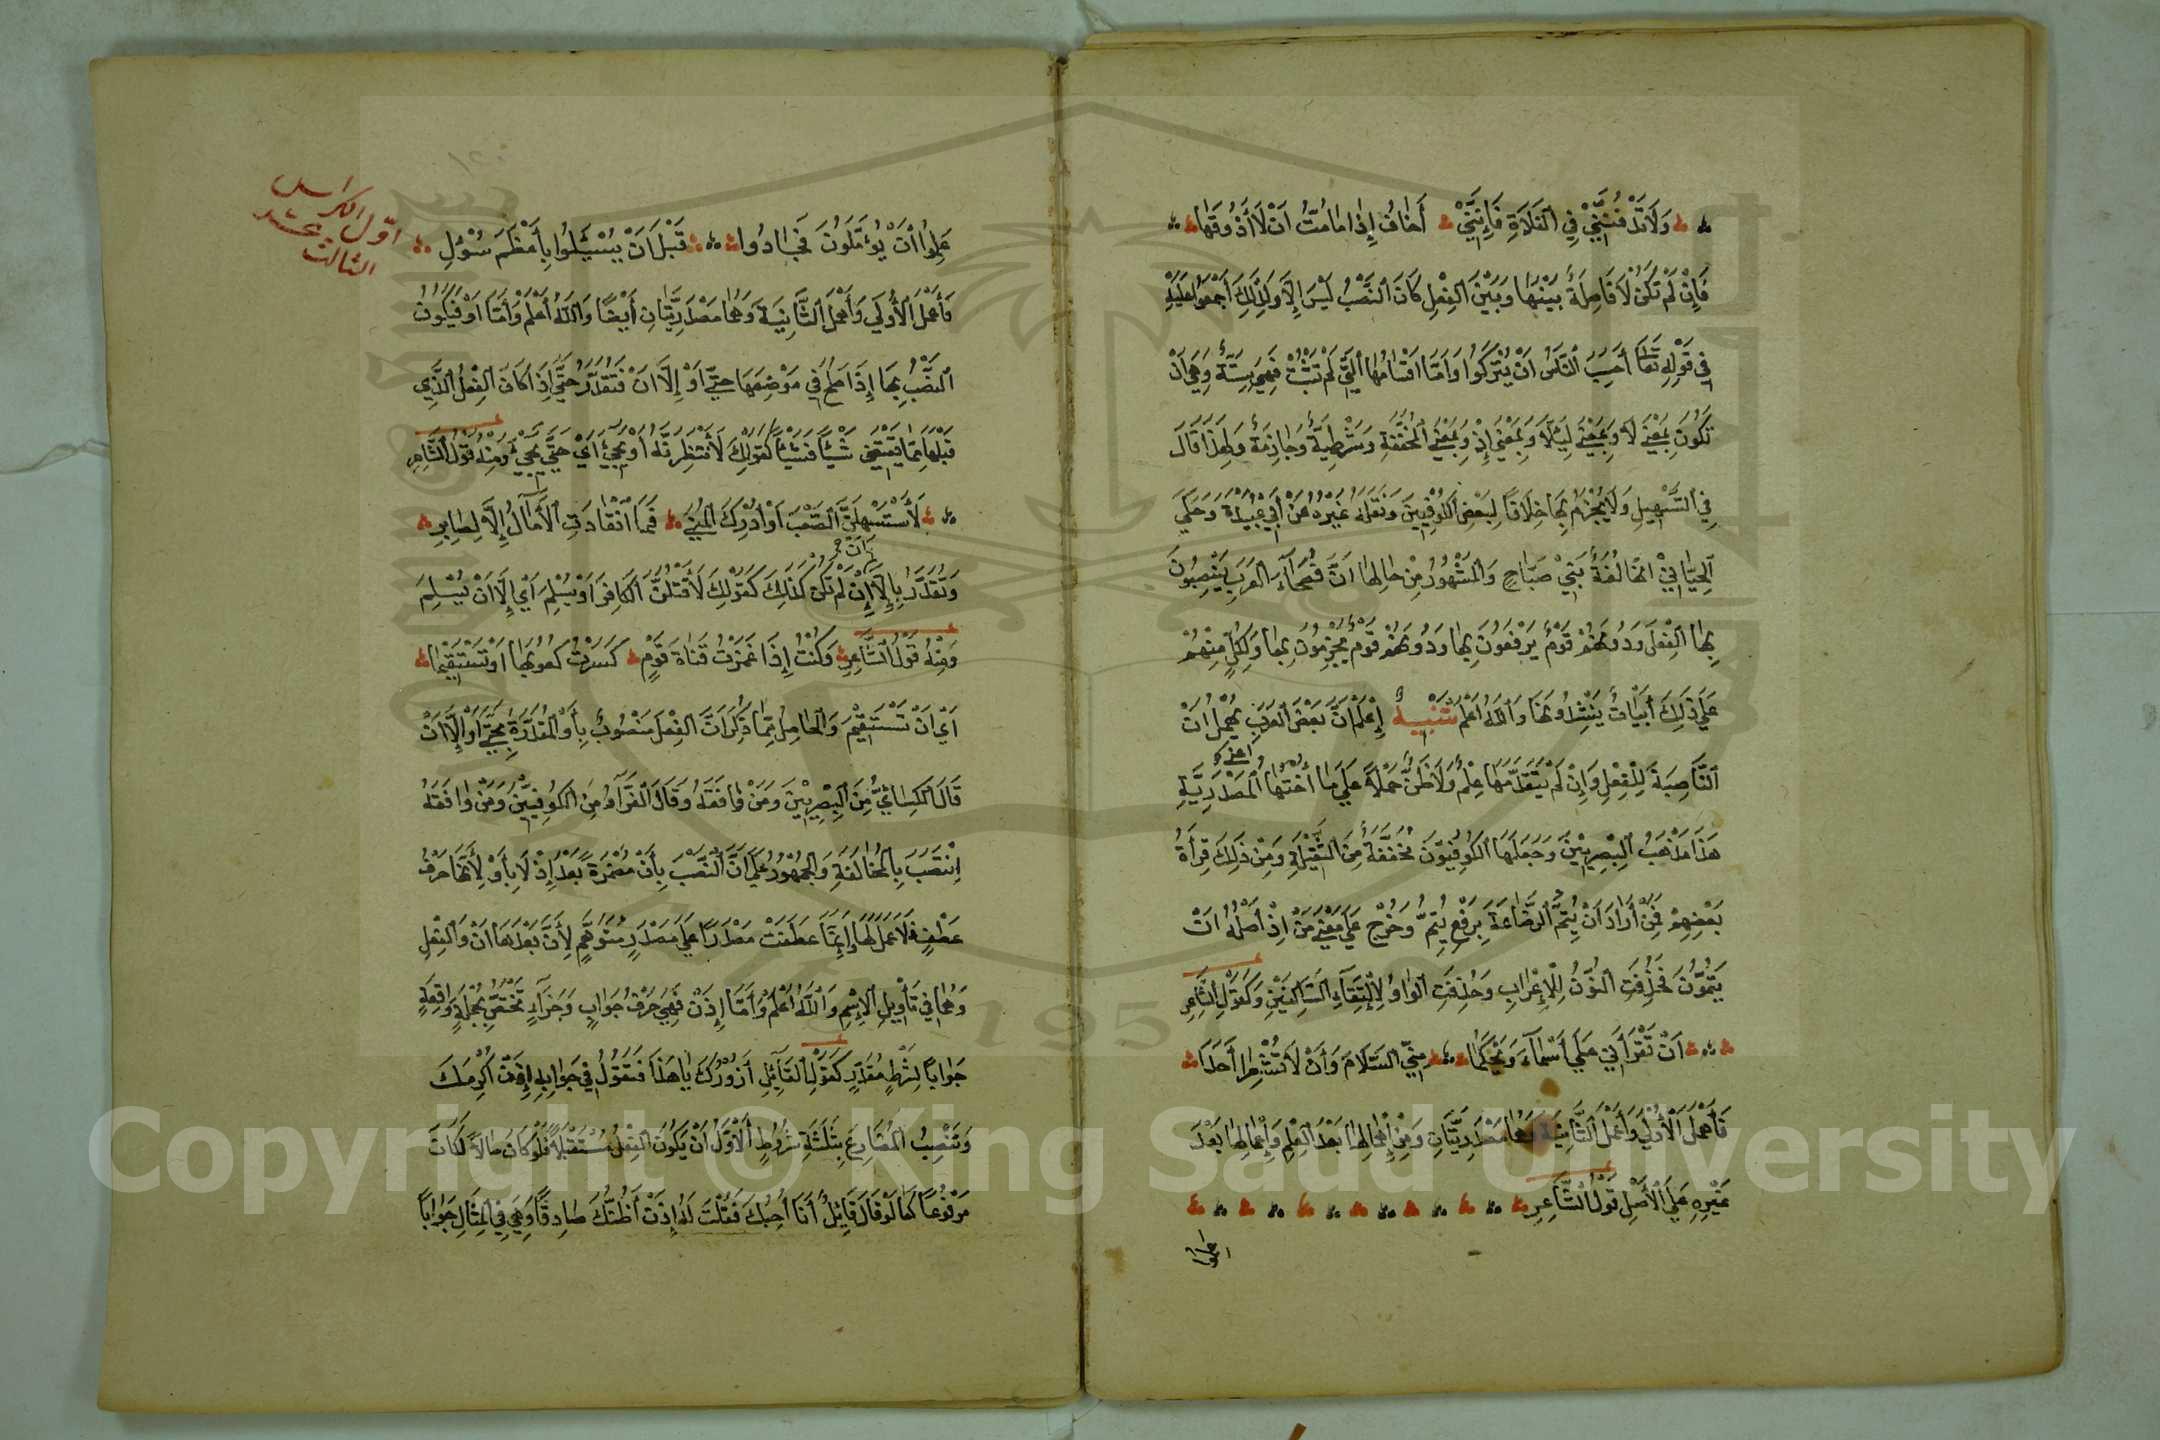 وَلَا تَدْفِنَنِّيْ فِي الْفَلَاةِ فَإِنَّنِيْ أَخَافُ إِذَا مَا مُتُّ أَنْ لَا أَذُوقَهَا
فَإِنْ لَمْ تَكُنْ لَا فَاصِلَةً بَيْنَهَا وَبَيْنَ الْفِعْلِ كَانَ النَّصْبُ لَيْسَ إِلَّا وَلِذَلِكَ أَجْمَعُوا عَلَيْهِ
فِي قَوْلِهِ تَعَالَى أَحَسِبَ النَّاسُ أَنْ يُتْرَكُوا وَأَمَّا أَقْسَامُهَا الَّتِي لَمْ تَثْبُتْ فَهِيَ سِتَّةٌ وَهِيَ أَنْ
تَكُونَ بِمَعْنَى لَا وَبِمَعْنَى لِئَلَّا وَبِمَعْنَى إِذْ وَبِمَعْنَى الْمُخَفَّفَةِ وَشَرْطِيَّةً وَجَازِمَةً وَلِهَذَا قَالَ
فِي التَّسْهِيلِ وَلَا يُجْزَمُ بِهَا خِلَافًا لِبَعْضِ الْكُوفِيِّينَ وَنَقَلَهُ غَيْرُهُ عَنْ أَبِي عُبَيْدَةَ وَحَكَى
اللِّحْيَانِيْ أَنَّهَا لُغَةُ بَنِيْ صَبَاحٍ وَالْمَشْهُورُ مِنْ حَالِهَا أَنَّ فُصَحَاءَ الْعَرَبِ يَنْصِبُونَ
بِهَا الْفِعْلَ وَدُونَهُمْ قَوْمٌ يَرْفَعُونَ بِهَا وَدُونَهُمْ قَوْمٌ يَجْزِمُونَ بِهَا وَلِكُلٍّ مِنْهُمْ
عَلَى ذَلِكَ أَبْيَاتٌ يُنْشِدُونَهَا وَاللهُ أَعْلَمُ تَنْبِيهٌ إِعْلَمْ أَنَّ بَعْضَ الْعَرَبِ يُهْمِلُ أَنْ
النَّاصِبَةَ لِلْفِعْلِ وَإِنْ لَمْ يَتَقَدَّمْهَا عِلْمٌ وَلَا ظَنٌّ حَمْلًا عَلَى مَا أُخْتِهَا أعني الْمَصْدَرِيَّةِ
هَذَا مَذْهَبُ الْبَصْرِيِّينَ وَجَعَلَهَا الْكُوفِيُّونَ مُخَفَّفَةً مِنَ الثَّقِيلَةِ وَمِنْ ذَلِكَ قِرَاءَةُ
بَعْضِهِمْ لِمَنْ أَرَادَ أَنْ يُتِمُّ الرَّضَاعَةَ بِرَفْعِ يُتِمُّ وَخُرِّجَ عَلَى مَعْنَى مَنْ إِذْ أَصْلُهُ أَنْ
يُتِمُّونَ فَحُذِفَتِ النُّوْنُ لِلْإِعْرَابِ وَحُذِفَتِ الْوَاوُ لِالْتِقَاءِ السَّاكِنَيْنِ وَكَقَوْلِ الشَّاعِرِ
أَنْ تَقْرَآنِ عَلَى أَسْمَاءَ وَيْحَكُمَا مِنِّي السَّلَامَ وَأَنْ لَا تُشْعِرَا أَحَدَا
فَأَهْمَلَ الْأُوْلَى وَأَعْمَلَ الثَّانِيَةَ وَهُمَا مَصْدَرِيَّتَانِ وَمِنْ إِهْمَالِهَا بَعْدَ الْعِلْمِ وَإِعْمَالِهَا بَعْدَ
غَيْرِهِ عَلَى الْأَصْلِ قَوْلُ الشَّاعِرِ
علموا
أوّل الكراس
الثالث عشر
عَلِمُوا أَنْ يُؤَمَّلُونَ فَجَادُوا قَبْلَ أَنْ يُسْئَلُوا بِأَعْظَمِ سُؤْلِ
فَأَهْمَلَ الْأُولَى وَأَعْمَلَ الثَّانِيَةَ وَهُمَا مَصْدَرِيَّتَانِ أَيْضًا وَاللهُ أَعْلَمُ وَأَمَّا أَوْ فَيَكُونُ
النَّصْبُ بِهَا إِذَا صَلُحَ فِي مَوْضِعِهَا حَتَّى أَوْ إِلَّا أَنْ فَتُقَدَّرُ حَتَّى إِذَا كَانَ الْفِعْلُ الَّذِي
قَبْلَهَا مِمَّا يَنْقَضِي شَيْئًا فَشَيْئًا كَقَوْلِكَ لَأَنْتَظِرَنَّهُ أَوْ يَجِيْءَ أَيْ حَتَّى يَجِيْءَ وَمِنْهُ قَوْلُ الشَّاعِرِ
لَأَسْتَسْهِلَنَّ الصَّعْبَ أَوْ أُدْرِكَ الْمُنَى فَمَا انْقَادَتِ الْآمَالُ إِلَّا لِصَابِرِ
وَتُقَدَّرُ بِإِلَّا أَنْ إِنْ لَمْ تَكُنْ كَذَلِكَ كَقَوْلِكَ لَأَقْتُلَنَّ الْكَافِرَ أَوْ يُسْلِمَ أَيْ إِلَّا أَنْ يُسْلِمَ
وَمِنْهُ قَوْلُ الشَّاعِرِ وَكُنْتُ إِذَا غَمَزْتُ قَنَاةَ قَوْمٍ كَسَرْتُ كُعُوبَهَا أَوْ تَسْتَقِيمَا
أَيْ أَنْ تَسْتَقِيْمَ وَالْحَاصِلُ مِمَّا ذُكِرَ أَنَّ الْفِعْلَ مَنْصُوبٌ بِأَوْ الْمُقَدَّرَةِ بِحَتَّى أَوْ إِلَّا أَنْ
قَالَ الْكِسَائِيُّ مِنَ الْبَصْرِيِّينَ وَمَنْ وَافَقَهُ وَقَالَ الْفَرَّاءُ مِنَ الْكُوفِيِّيْنَ وَمَنْ وَافَقَهُ
اِنْتَصَبَ بِالْمُخَالَفَةِ وَالْجُمْهُورُ عَلَى أَنَّ النَّصْبَ بِأَنْ مُضْمَرَةً بَعْدَ إِذْ لَا بِأَوْ لِأَنَّهَا حَرْفُ
عَطْفٍ فَلَا عَمَلَ لَهَا وَإِنَّمَا عَطَفَتْ مَصْدَرًا عَلَى مَصْدَرٍ مُتَوَهَّمٍ لِأَنَّ بَعْدَهَا أَنْ وَالْفِعْلِ
وَهُمَا فِي تَأْوِيلِ الْاِسْمِ وَاللَّهُ أَعْلَمُ وَأَمَّا إِذَنْ فَهِيَ حَرْفُ جَوَابٍ وَجَزَاءٍ تَخْتَصُّ بِجُمْلَةٍ وَاقِعَةٍ
جَوَابًا لِشَرْطٍ مُقَدَّرٍ كَقَوْلِ الْقَائِلِ أَزُورُكَ يَا هَذَا فَتَقُوْلُ فِي جَوَابِهِ إِذَنْ أُكْرِمَكَ
وَتَنْصِبُ الْمُضَارِعَ بِثَلَثَةِ شُرُوطٍ الْأَوَّلُ أَنْ يَكُونَ الْفِعْلُ مُسْتَقْبَلًا فَلَوْ كَانَ حَالًا لَكَانَ
مَرْفُوعًا كَمَا لَوْ قَالَ قَائِلٌ أَنَا أُحِبُّكَ فَقُلْتَ لَهُ إِذَنْ أَظُنُّكَ صَادِقًا وَهِيَ فِي الْمِثَالِ جَوَابًا
Copyright © King Saud University
1957